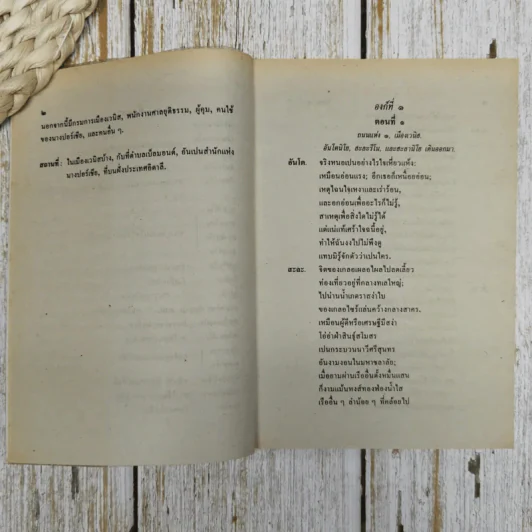 ๒
นอกจากนี้มีกรมการเมืองเวนิส, พนักงานศาลยุติธรรม, ผู้คุม, คนใช้
ของนางปอร์เชีย, และคนอื่น ๆ.
สถานที่ : ในเมืองเวนิสบ้าง, กับที่ตำบลเบ็ลมอนต์, อันเปนสำนักแห่ง
นางปอร์เชีย, ที่บนฝั่งประเทศอิตาลี.
องก์ที่ ๑
ตอนที่ ๑
ถนนแห่ง ๑, เมืองเวนิส.
อันโตนิโย, สะละรีโน, และสะลานิโย เดินออกมา.
อันโต. จริงหนอเปนอย่างไรใจเหี่ยวแห้ง:
เหนื่อยอ่อนแรง; อีกเธอก็เหนื่อยอ่อน;
เหตุไฉนใจเหงาและเร่าร้อน,
และอกอ่อนเพื่ออะไรก็ไม่รู้,
สาเหตุเพื่อสิ่งใดไม่รู้ได้
แต่แน่แท้เศร้าใจฉนี้อยู่,
ทำให้ฉันงงไปไม่พึงดู
แทบมิรู้จักตัวว่าเปนใคร.
สะละ. จิตของเกลอเผลอไผลไปลดเลี้ยว
ท่องเที่ยวอยู่ที่กลางทเลใหญ่;
ไปน่านน้ำเภตราอร่าใบ
ของเกลอไซร้แล่นคว้างกลางสาคร.
เหมือนผู้ดีหรือเศรษฐีมีสง่า
ไอ่อ่าฝ่าสินธุ์สโมสร
เปนกระบวนนาวีศรีสุนทร
อันงามงอนในมหาชลาลัย;
เมื่อยามผ่านเรืออื่นตั้งหมื่นแสน
ก็งามแม้นหงส์ทองฟ่องน้ำใส
เรืออื่น ๆ ลำน้อย ๆ ที่คล้อยไป